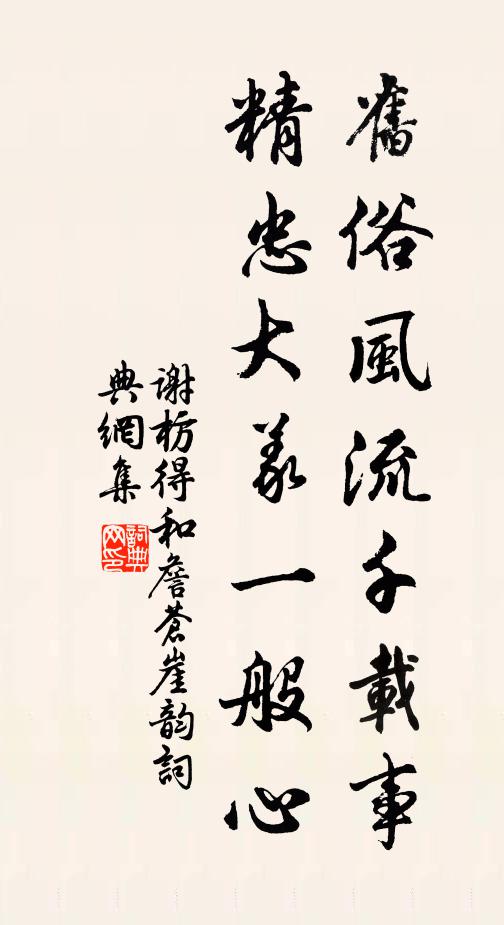 舊俗風流千載事
精忠大義一般心
謝枋得和詹蒼崖韵詞
典網集
詞典
网印